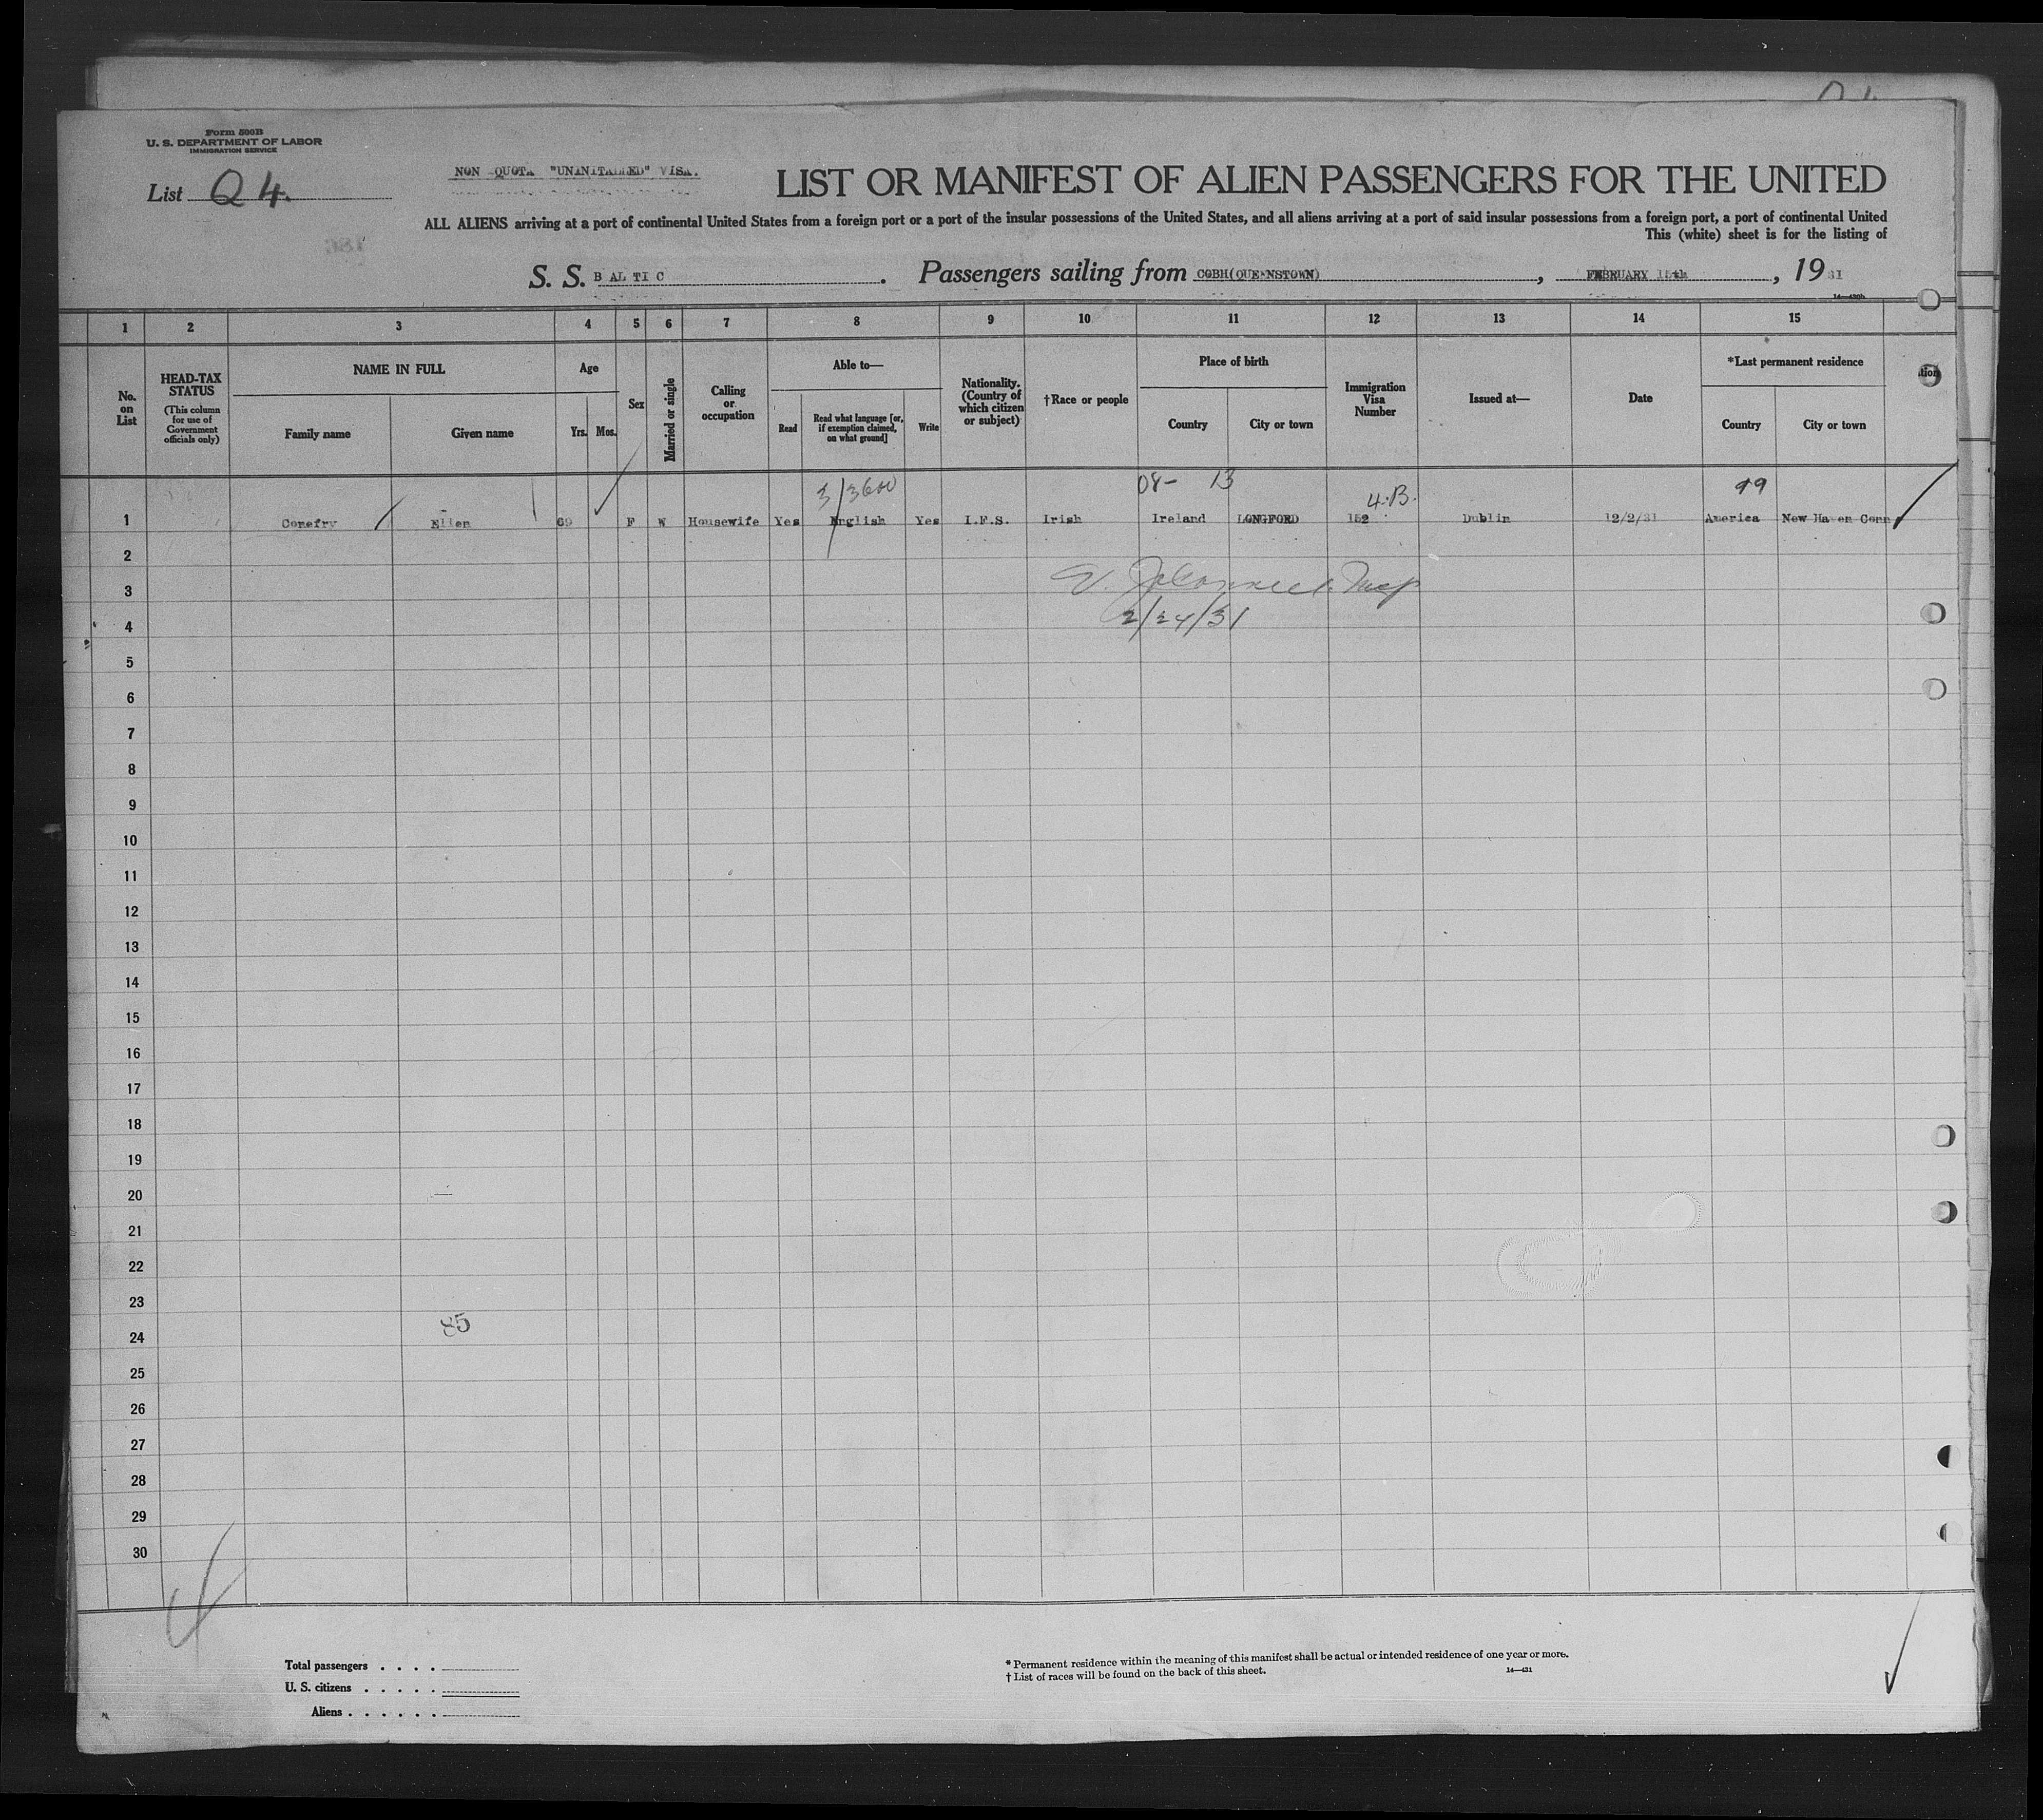 Form 500B
U. S. DEPARTMENT OF LABOR
IMMIGRATION SERVICE
List Q 4.
NON QUOTA "UNINITALLED" VISA.
LIST OR MANIFEST OF ALIEN PASSENGERS FOR THE UNITED
ALL ALIENS arriving at a port of continental United States from a foreign port or a port of the insular possessions of the United States, and all aliens arriving at a port of said insular possessions from a foreign port, a port of continental United
This (white) sheet is for the listing of
S. S. B AL TI C . Passengers sailing from COBH(QUEENSTOWN) , FEBRUARY 15th , 19 31
14—430b
1 2 3 4 5 6 7 8 9 10 11 12 13 14 15
No. on List
HEAD-TAX STATUS
(This column for use of Government officials only)
NAME IN FULL
Family name
Given name
Age
Yrs.
Mos.
Sex
Married or single
Calling or occupation
Able to—
Read
Read what language [or, if exemption claimed, on what ground]
Write
Nationality. (Country of which citizen or subject)
†Race or people
Place of birth
Country
City or town
Immigration Visa Number
Issued at—
Date
*Last permanent residence
Country
City or town
3/3600 08- 13 4.B. 99
1 Comefry Ellen 69 F W Housewife Yes English Yes I.F.S. Irish Ireland LONGFORD 152 Dublin 12/2/31 America New Haven Conn
2
3
2/24/31
4
5
6
7
8
9
10
11
12
13
14
15
16
17
18
19
20
21
22
23
85
24
25
26
27
28
29
30
Total passengers . . . .
U. S. citizens . . . . .
Aliens . . . . . .
* Permanent residence within the meaning of this manifest shall be actual or intended residence of one year or more.
† List of races will be found on the back of this sheet.
14—431